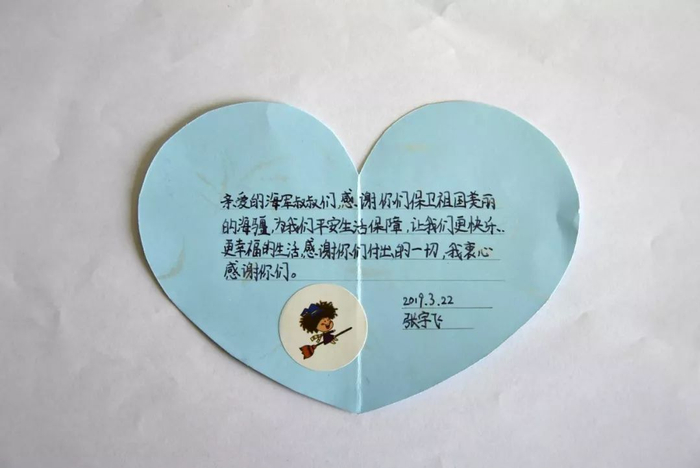 亲爱的海军叔叔们,感谢你们保卫祖国美丽
的海疆,为我们平安生活保障,让我们更快乐、
更幸福的生活,感谢你们付出的一切,我衷心
感谢你们。
2019.3.22
张宇飞